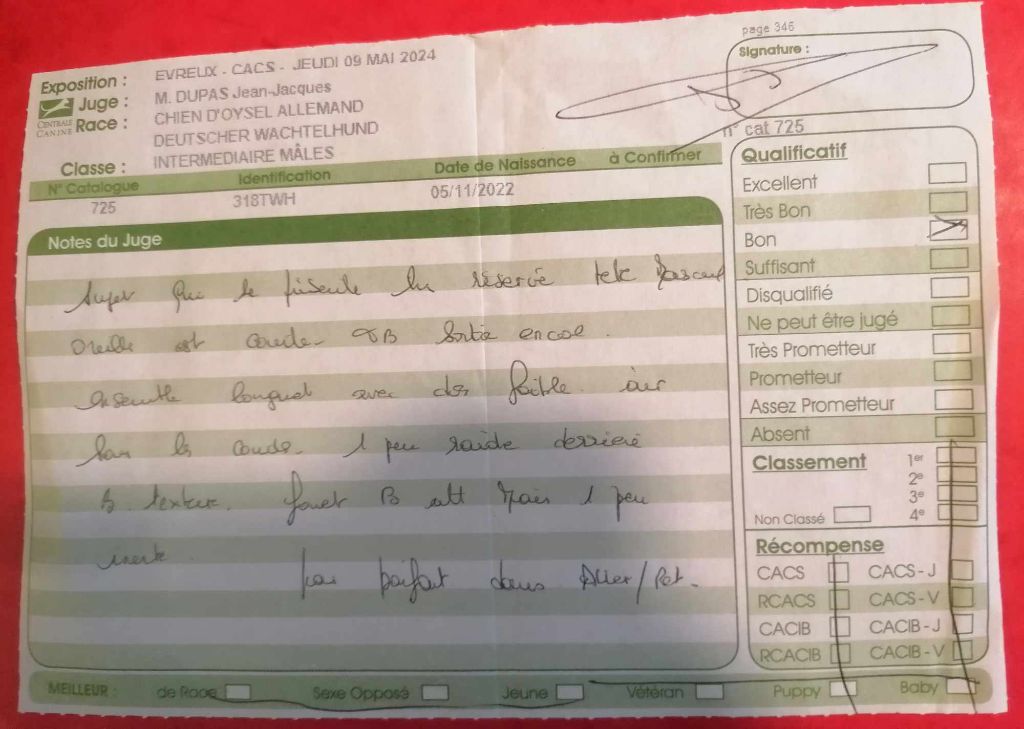 page 346
Exposition : EVREUX - CACS - JEUDI 09 MAI 2024
Signature :
CENTRALE CANINE
Juge : M. DUPAS Jean-Jacques
Race : CHIEN D'OYSEL ALLEMAND
DEUTSCHER WACHTELHUND
Classe : INTERMEDIAIRE MÂLES
n° cat 725
N° Catalogue Identification Date de Naissance à Confirmer
725 318TWH 05/11/2022
Notes du Juge
Sujet qui se présente un réservé tete
oreille est TB Sortie encol.
ensemble longuet avec des faible sur
les coude. 1 peu raide derriere
B. texture. fouet B att mais 1 peu
inerte
pas parfait dans Aller/Ret.
Qualificatif
Excellent
Très Bon
Bon
Suffisant
Disqualifié
Ne peut être jugé
Très Prometteur
Prometteur
Assez Prometteur
Absent
Classement 1er
2e
3e
Non Classé 4e
Récompense
CACS CACS - J
RCACS CACS - V
CACIB CACIB - J
RCACIB CACIB - V
MEILLEUR : de Race Sexe Opposé Jeune Vétéran Puppy Baby